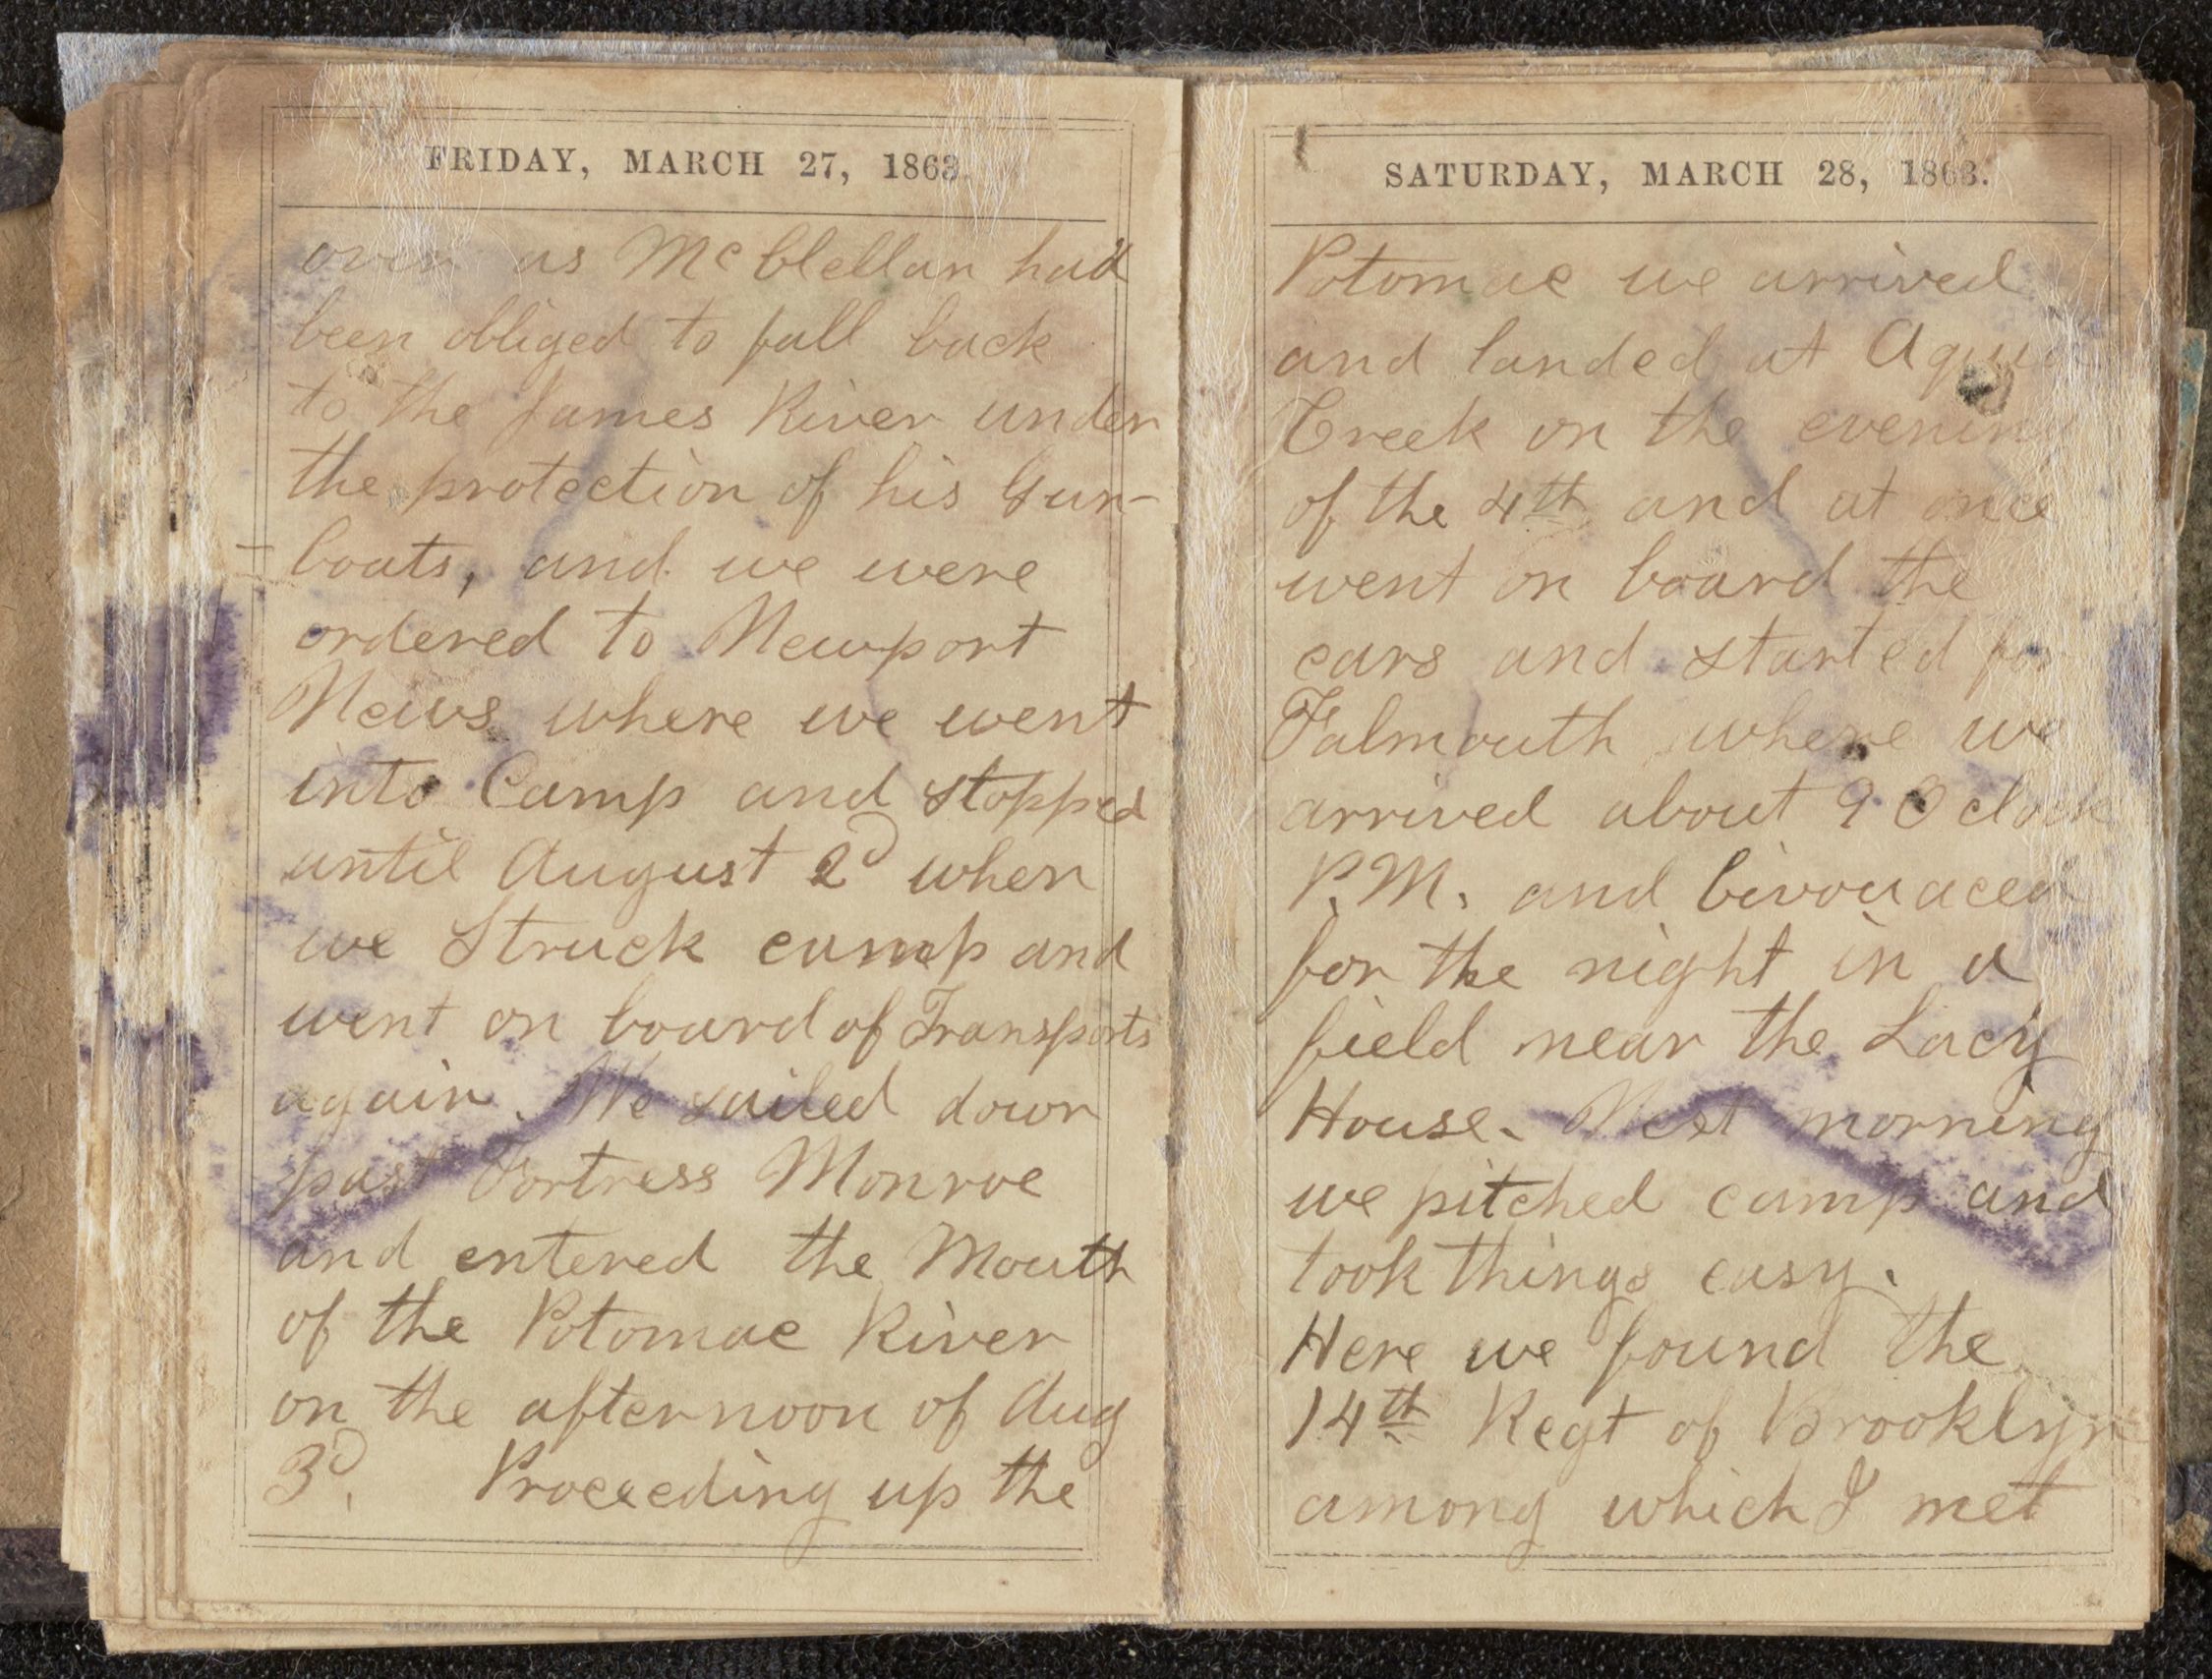 FRIDAY, MARCH 27, 1863.
over as McClellan had
been obliged to fall back
to the James River under
the protection of his Gun-
boats, and we were
ordered to Newport
News where we went
into Camp and stopped
until August 2d when
we Struck camp and
went on board of Transports
again. We sailed down
past Fortress Monroe
and entered the Mouth
of the Potomac River
on the afternoon of Aug
3d. Proceeding up the
SATURDAY, MARCH 28, 1863.
Potomac we arrived
and landed at Aquia
Creek on the evening
of the 4th and at once
went on board the
cars and started for
Falmouth where we
arrived about 9 O clock
P.M. and bivouaced
for the night in a
field near the Lacy
House. Next morning
we pitched camp and
took things easy.
Here we found the
14th Regt of Brooklyn
among which I met